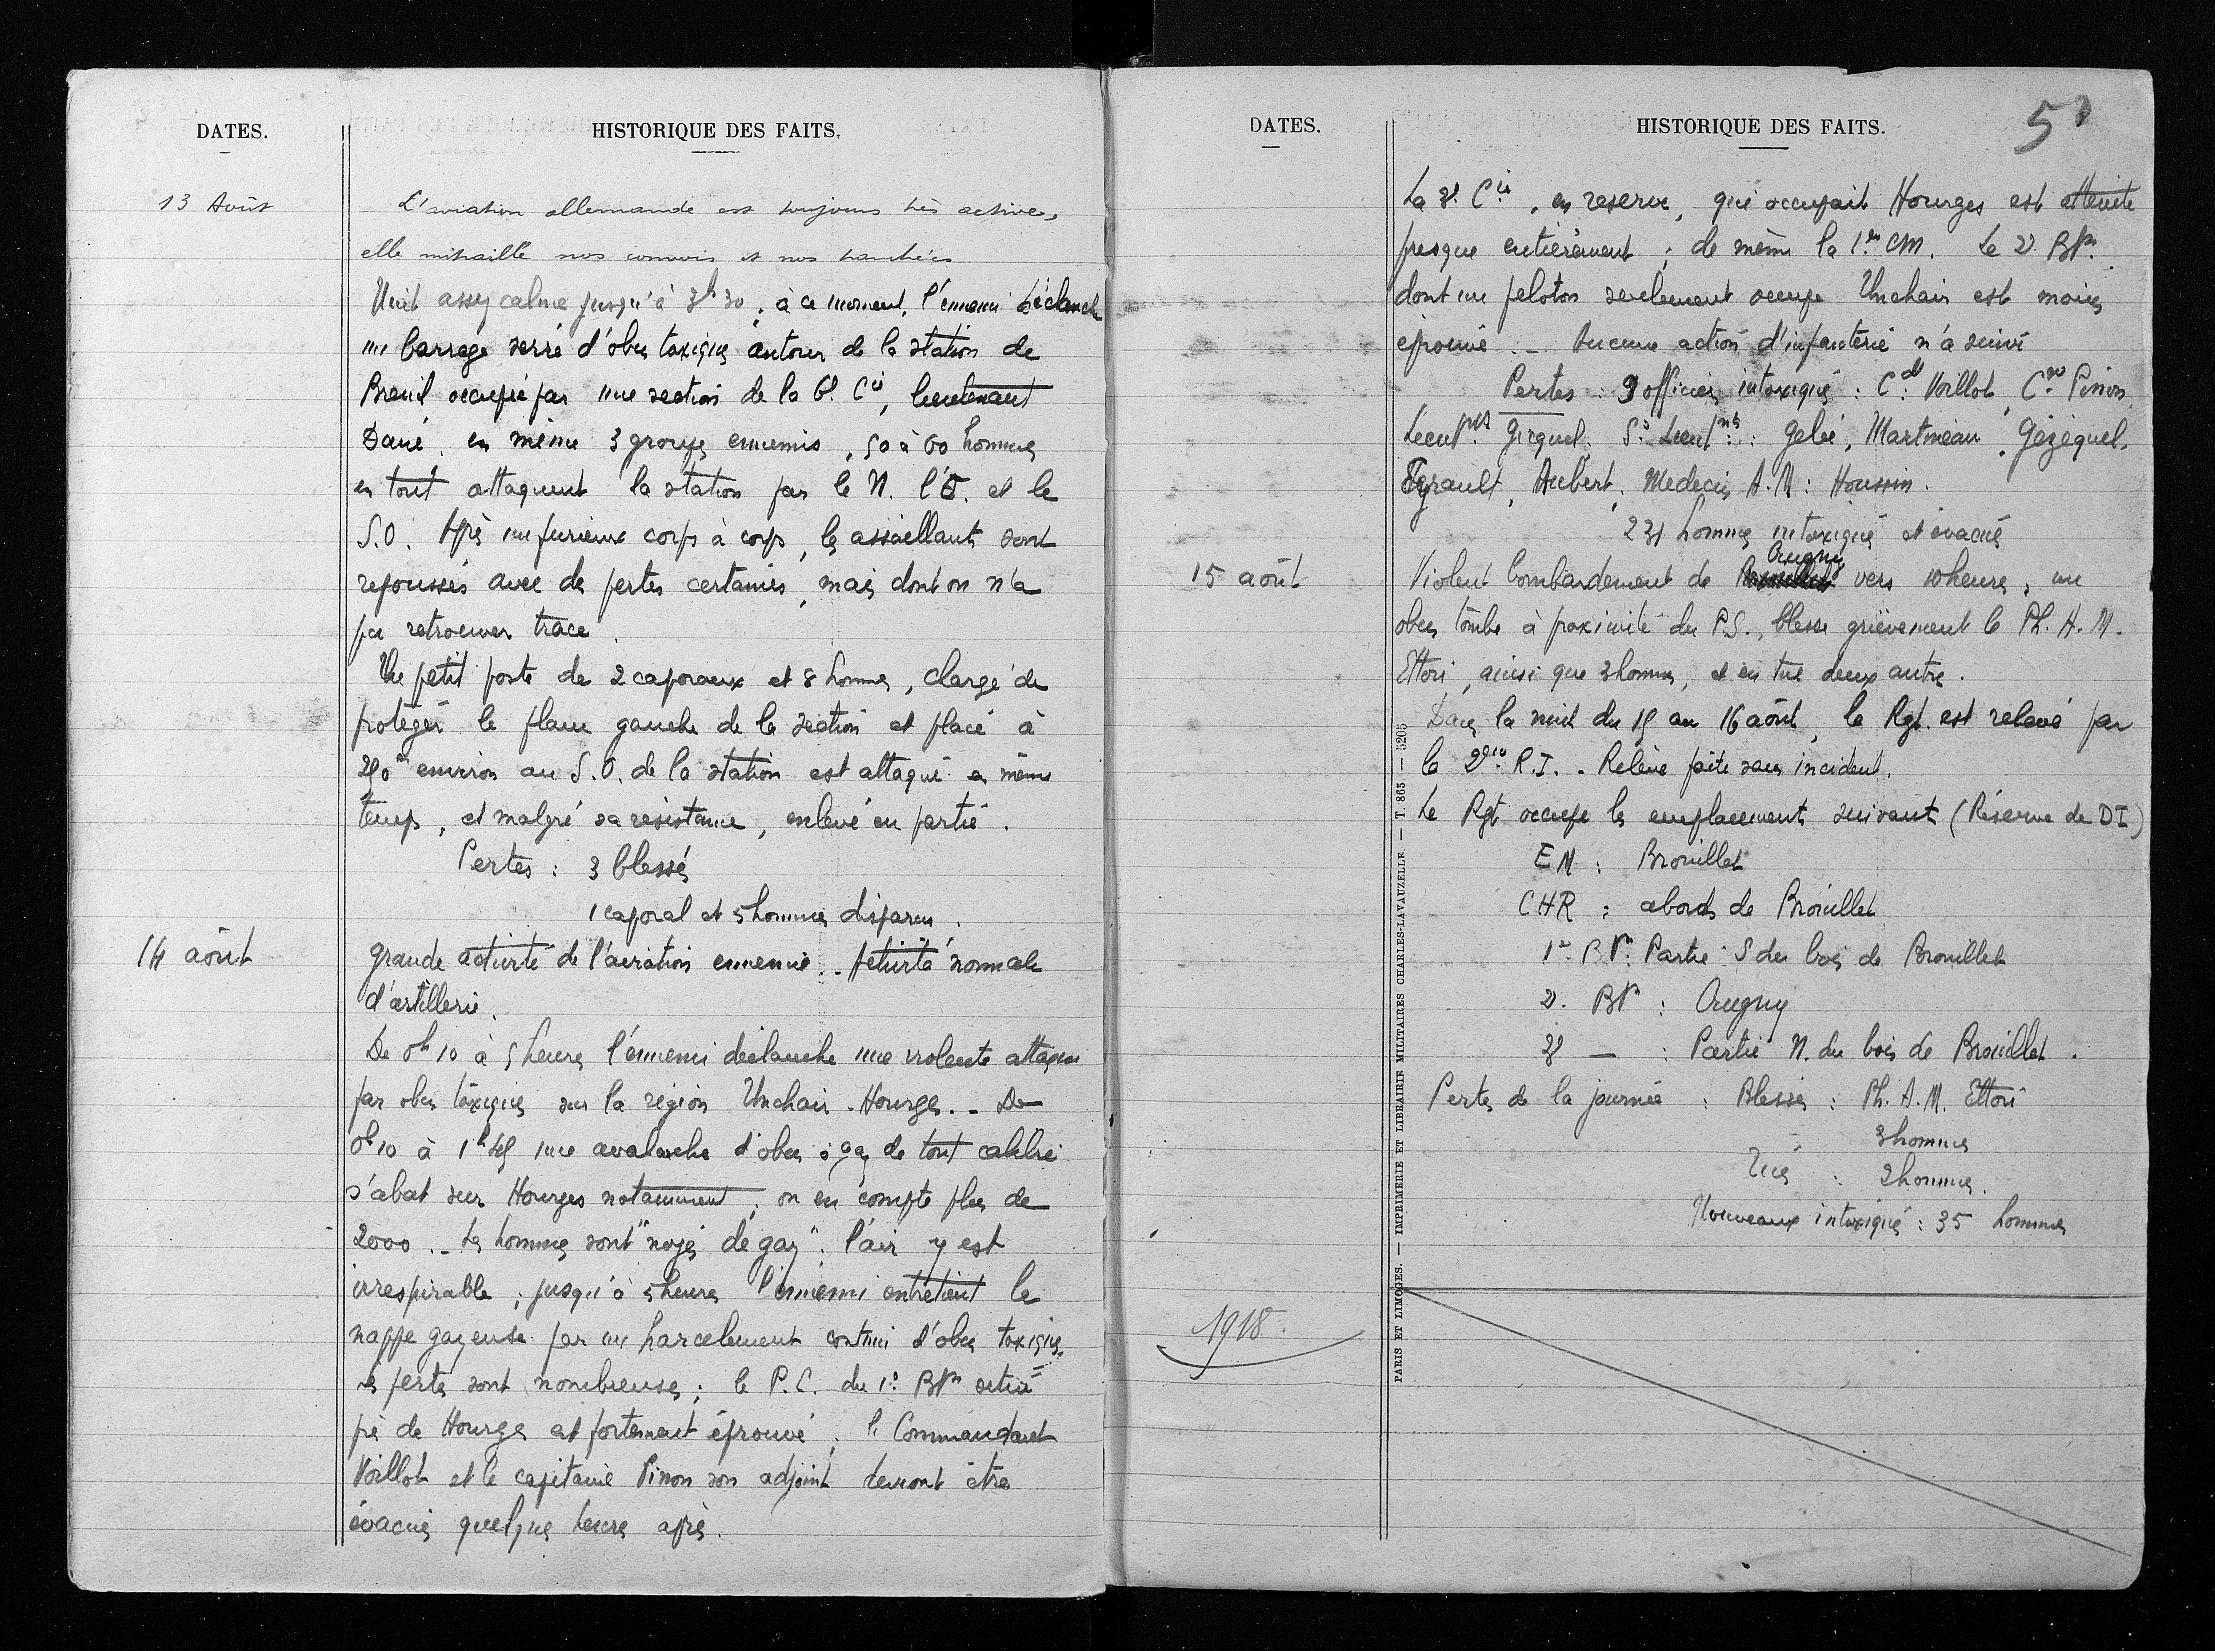 DATES.
HISTORIQUE DES FAITS.
13 Août
L'aviation allemande est toujours très active,
elle mitraille nos convois et nos tranchées
Nuit assez calme jusqu'à 3h30 ; à ce moment, l'ennemi déclanche
un barrage serré d'obus toxiques autour de la station de
Breuil occupée par une section de la 6e Cie, lieutenant
en même 3 groupes ennemis, 50 à 60 hommes
en tout attaquent la station par le N. l'E. et le
S.O. Après un furieux corps à corps, les assaillants sont
repoussés avec des pertes certaines, mais dont on n'a
pu retrouver trace.
Un petit poste de 2 caporaux et 8 hommes, chargé de
protéger le flanc gauche de la section et placé à
250m environ au S.O. de la station est attaqué en même
temps, et malgré sa résistance, enlevé en partie.
Pertes : 3 blessés
1 caporal et 5 hommes disparus.
14 août
Grande activité de l'aviation ennemie.. Activité normale
d'artillerie.
De 0h10 à 5 heures l'ennemi déclanche une violente attaque
par obus toxiques sur la région Unchair - Hourges. - De
0h10 à 1h45 une avalanche d'obus à gaz de tout calibre
s'abat sur Hourges notamment ; on en compte plus de
2000 .- Les hommes sont "noyés de gaz" ; l'air y est
irrespirable ; jusqu'à 5 heures l'ennemi entretient le
nappe gazeuse par un harcelement continu d'obus toxiques.
les pertes sont nombreuses ; le P.C. du 1er Btn situé
près de Hourges est fortement éprouvé ; le Commandant
Voillot et le capitaine Pinon son adjoint devront être
évacués quelques heures après.
DATES.
HISTORIQUE DES FAITS.
5
La 3e Cie, en reserve, qui occupait Hourges est atteinte
presque entièrement ; de même la 1ère CM. Le 2e Btn.
dont un peloton seulement occupe Unchair est moins
éprouvé .- Aucune action d'infanterie n'a suivi
Pertes : 9 officiers intoxiqués : Cdt Voillot, Cne Pinon,
Lieutnts Gicquel, S.s Lieutnts : Gelié, Martineau, Gézéquel,
Eyrault, Aubert, Medecin A.M : Houssin.
231 hommes intoxiqués et évacués
15 août
Crugny
Violent bombardement de vers 10 heures, un
obus tombe à proximité du P.S., blesse grièvement le Ph. A. M.
Ettori, ainsi que 3 hommes, et en tue deux autres.
Dans la nuit du 15 au 16 août, le Rgt est relevé par
le R.I. - Relève faite sans incident.
Le Rgt occupe les emplacements suivants (Réserve de DI)
EM : Brouillet
CHR : abords de Brouillet
1er Btn : Partie S du bois de Brouillet
2e Btn : Crugny
3e — : Partie N. du bois de Brouillet.
Pertes de la journée : Blessés : Ph. A. M. Ettori
3 hommes
Tués : 2 hommes.
Nouveaux intoxiqués : 35 hommes
1918.
PARIS ET LIMOGES. — IMPRIMERIE ET LIBRAIRIE MILITAIRES CHARLES-LAVAUZELLE. — T. 865 — 5205